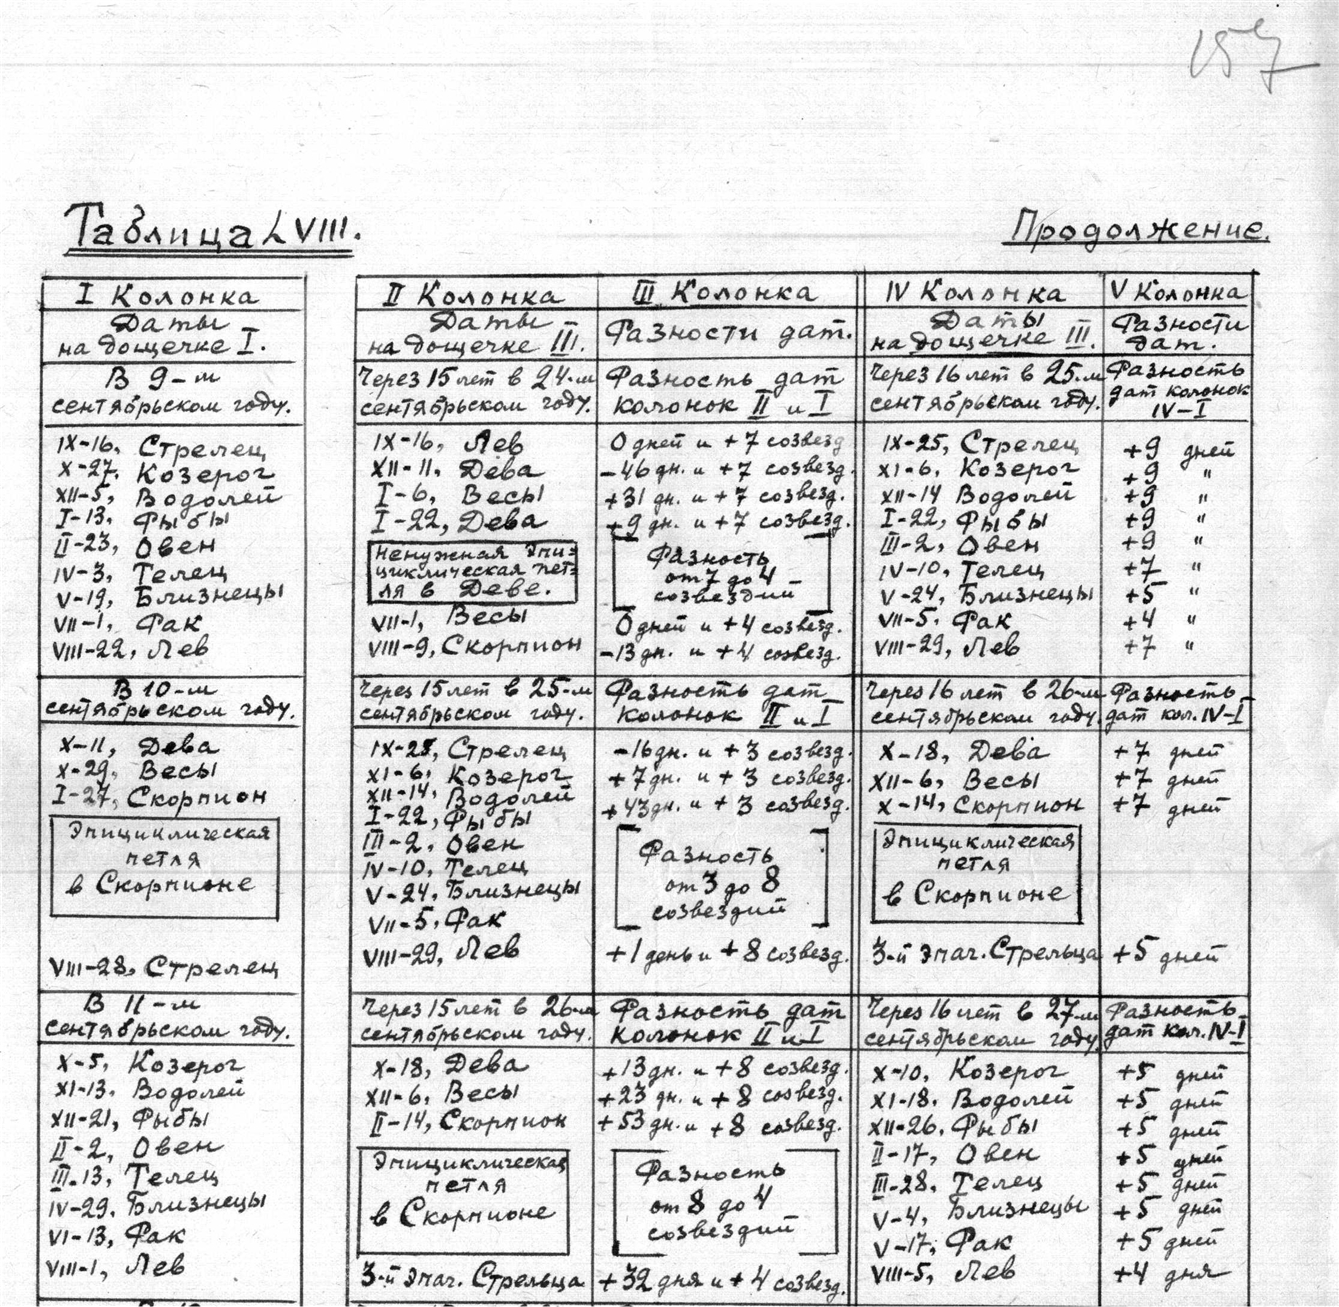 157
Таблица LVIII.
Продолжение.
I Колонка
Даты
на дощечке I.
В 9-м
сентябрьском году.
IX-16, Стрелец
X-27, Козерог
XII-5, Водолей
I-13, Рыбы
II-23, Овен
IV-3, Телец
V-19, Близнецы
VII-1, Рак
VIII-22, Лев
В 10-м
сентябрьском году.
X-11, Дева
X-29, Весы
I-27, Скорпион
Эпициклическая
петля
в Скорпионе
VIII-28, Стрелец
В 11-м
сентябрьском году.
X-5, Козерог
XI-13, Водолей
XII-21, Рыбы
II-2, Овен
III-13, Телец
IV-29, Близнецы
VI-13, Рак
VIII-1, Лев
II Колонка
Даты
на дощечке III.
Через 15 лет в 24-м
сентябрьском году.
IX-16, Лев
XII-11, Дева
I-6, Весы
I-22, Дева
Ненужная эпи-
циклическая пет-
ля в Деве.
VII-1, Весы
VIII-9, Скорпион
Через 15 лет в 25-м
сентябрьском году.
IX-25, Стрелец
XI-6, Козерог
XII-14, Водолей
I-22, Рыбы
III-2, Овен
IV-10, Телец
V-24, Близнецы
VII-5, Рак
VIII-29, Лев
Через 15 лет в 26-м
сентябрьском году.
X-18, Дева
XII-6, Весы
II-14, Скорпион
Эпициклическая
петля
в Скорпионе
3-й знач. Стрельца
III Колонка
Разности дат.
Разность дат
колонок II и I
0 дней и +7 созвезд
-46 дн. и +7 созвезд.
+31 дн. и +7 созвезд.
+9 дн. и +7 созвезд.
Разность
от 7 до 4
созвездий
0 дней и +4 созвезд.
-13 дн. и +4 созвезд.
Разность дат
колонок II и I
-16 дн. и +3 созвезд.
+7 дн. и +3 созвезд.
+43 дн. и +3 созвезд.
Разность
от 3 до 8
созвездий
+1 день и +8 созвезд.
Разность дат
колонок II и I
+13 дн. и +8 созвезд.
+23 дн. и +8 созвезд.
+53 дн. и +8 созвезд.
Разность
от 8 до 4
созвездий
+32 дня и +4 созвезд.
IV Колонка
Даты
на дощечке III.
Через 16 лет в 25-м
сентябрьском году.
IX-25, Стрелец
XI-6, Козерог
XII-14 Водолей
I-22, Рыбы
III-2, Овен
IV-10, Телец
V-24, Близнецы
VII-5, Рак
VIII-29, Лев
Через 16 лет в 26-м
сентябрьском году.
X-18, Дева
XII-6, Весы
X-14, Скорпион
Эпициклическая
петля
в Скорпионе
3-й знач. Стрельца
Через 16 лет в 27-м
сентябрьском году.
X-10, Козерог
XI-18, Водолей
XII-26, Рыбы
II-17, Овен
III-28, Телец
V-4, Близнецы
V-17, Рак
VIII-5, Лев
V Колонка
Разности
дат.
Разность
дат колонок
IV-I
+9 дней
+9 "
+9 "
+9 "
+9 "
+7 "
+5 "
+4 "
+7 "
Разность
дат кол. IV-I
+7 дней
+7 дней
+7 дней
+5 дней
Разность
дат кол. IV-I
+5 дней
+5 дней
+5 дней
+5 дней
+5 дней
+5 дней
+5 дней
+4 дня